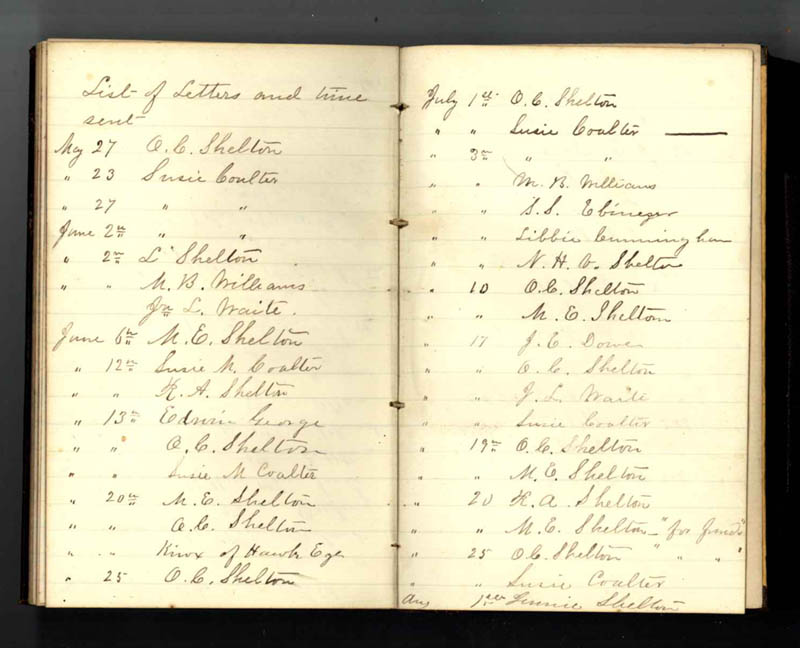 List of Letters and time
sent
May 27 O.C. Shelton
" 23 Susie Coulter
" 27 " "
June 2nd " "
" 2nd L" Shelton
" " M. B. Williams
Jn L. Waite.
June 6th M.E. Shelton
" 12th Susie M. Coulter
" " K. A. Shelton
" 13th Edwin George
" " O.C. Shelton
" " Susie M Coulter
" 20th M.E. Shelton
" " O.C. Shelton
" " Knox of Hawk Eye
" 25 O.C. Shelton
July 1st O.C. Shelton
" " Susie Coulter
" 3rd " "
" " M. B. Williams
" " S. S. Ebineger
" " Libbie Cunningham
" " N. H. Shelton
" 10 O.C. Shelton
" " M. E. Shelton
" 17 J. C.
" " O.C. Shelton
" " J. L. Waite
" " Susie Coulter
" 19th O.C. Shelton
" " M.E. Shelton
" 20 K. A. Shelton
" " M.E. Shelton "for
" 25 O.C. Shelton " " " "
" " Susie Coulter
Aug 1st Shelton